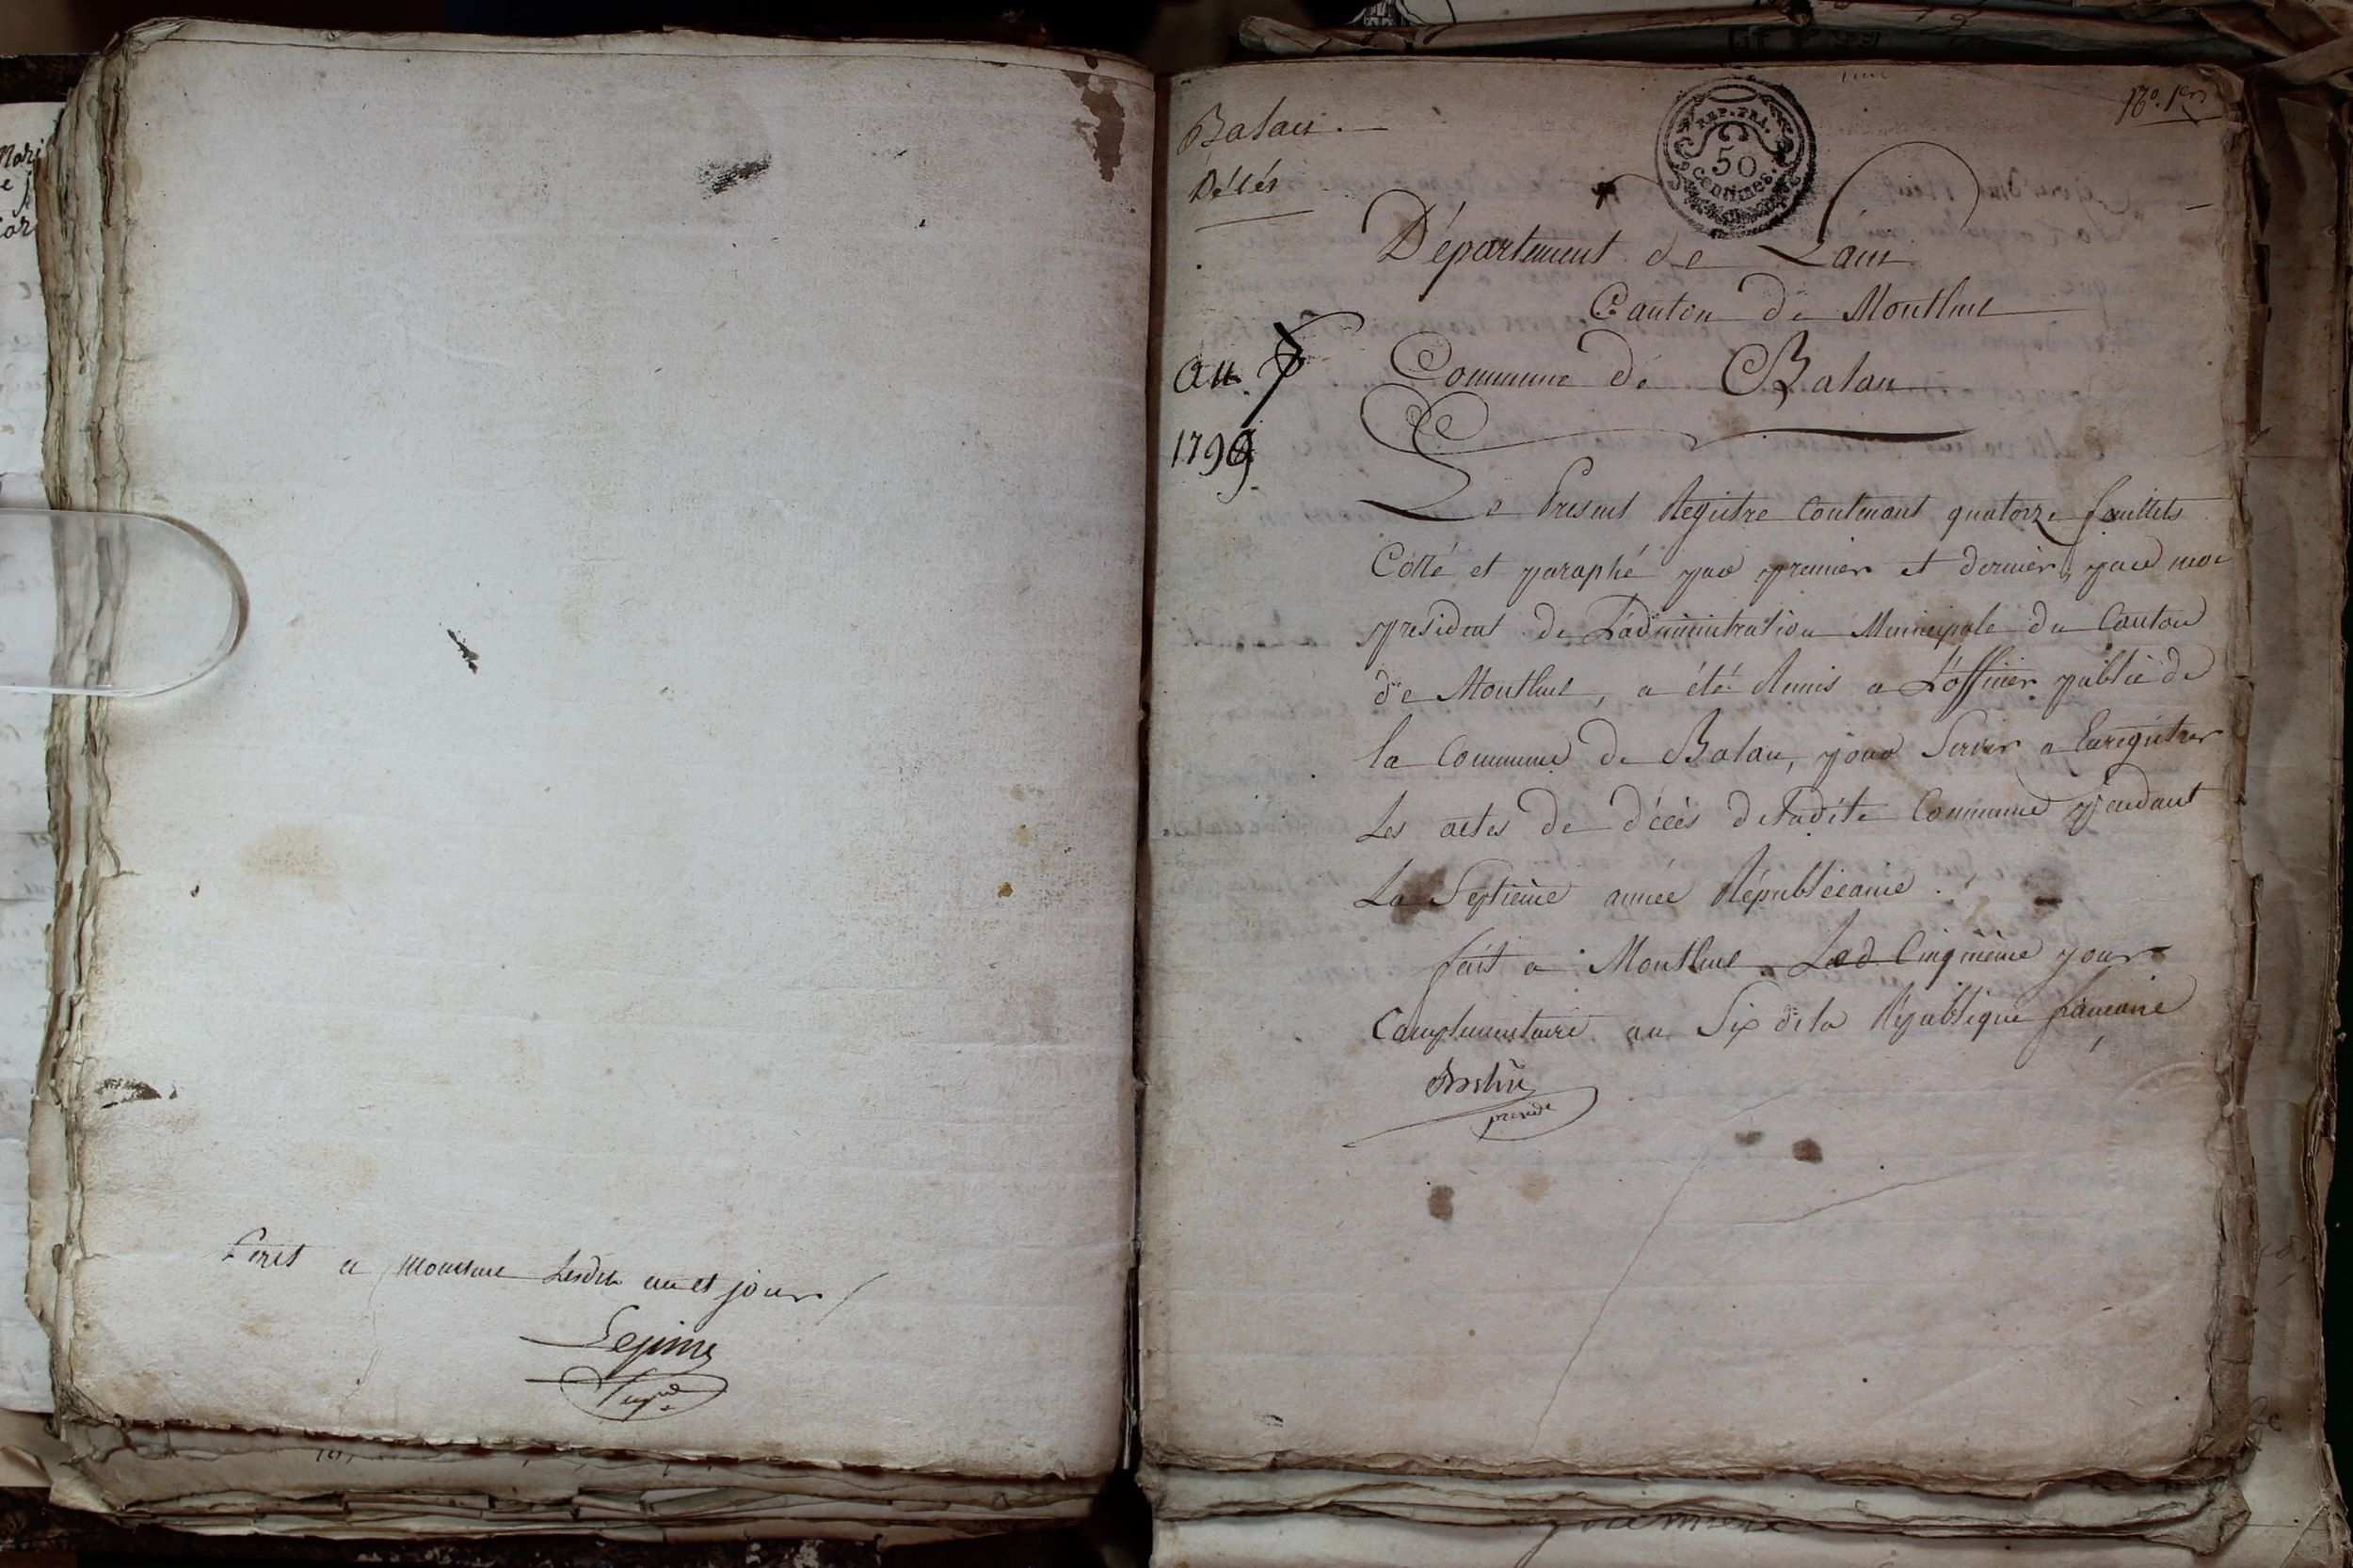 a Montluel Lesdits an et jour
Balan.
Décés
REP. FRA.
50
centimes.
N.º 1er
Département de Lain
Canton de Montluel
an. 7
Commune de Balan
1799
Le Present Registre Contenant quatorze feuillets
Cotté et paraphé par premier et dernier, par moi
president de L'administration Municipale du Canton
de Montluel, a été Remis a L'officier public de
la Commune de Balan, pour Servir a Enregistrer
Les actes de décès deladite Commune pendant
La Septieme année Républicaine.
fait a Montluel Cinquieme jour
Complementaire an Six dela République francaise